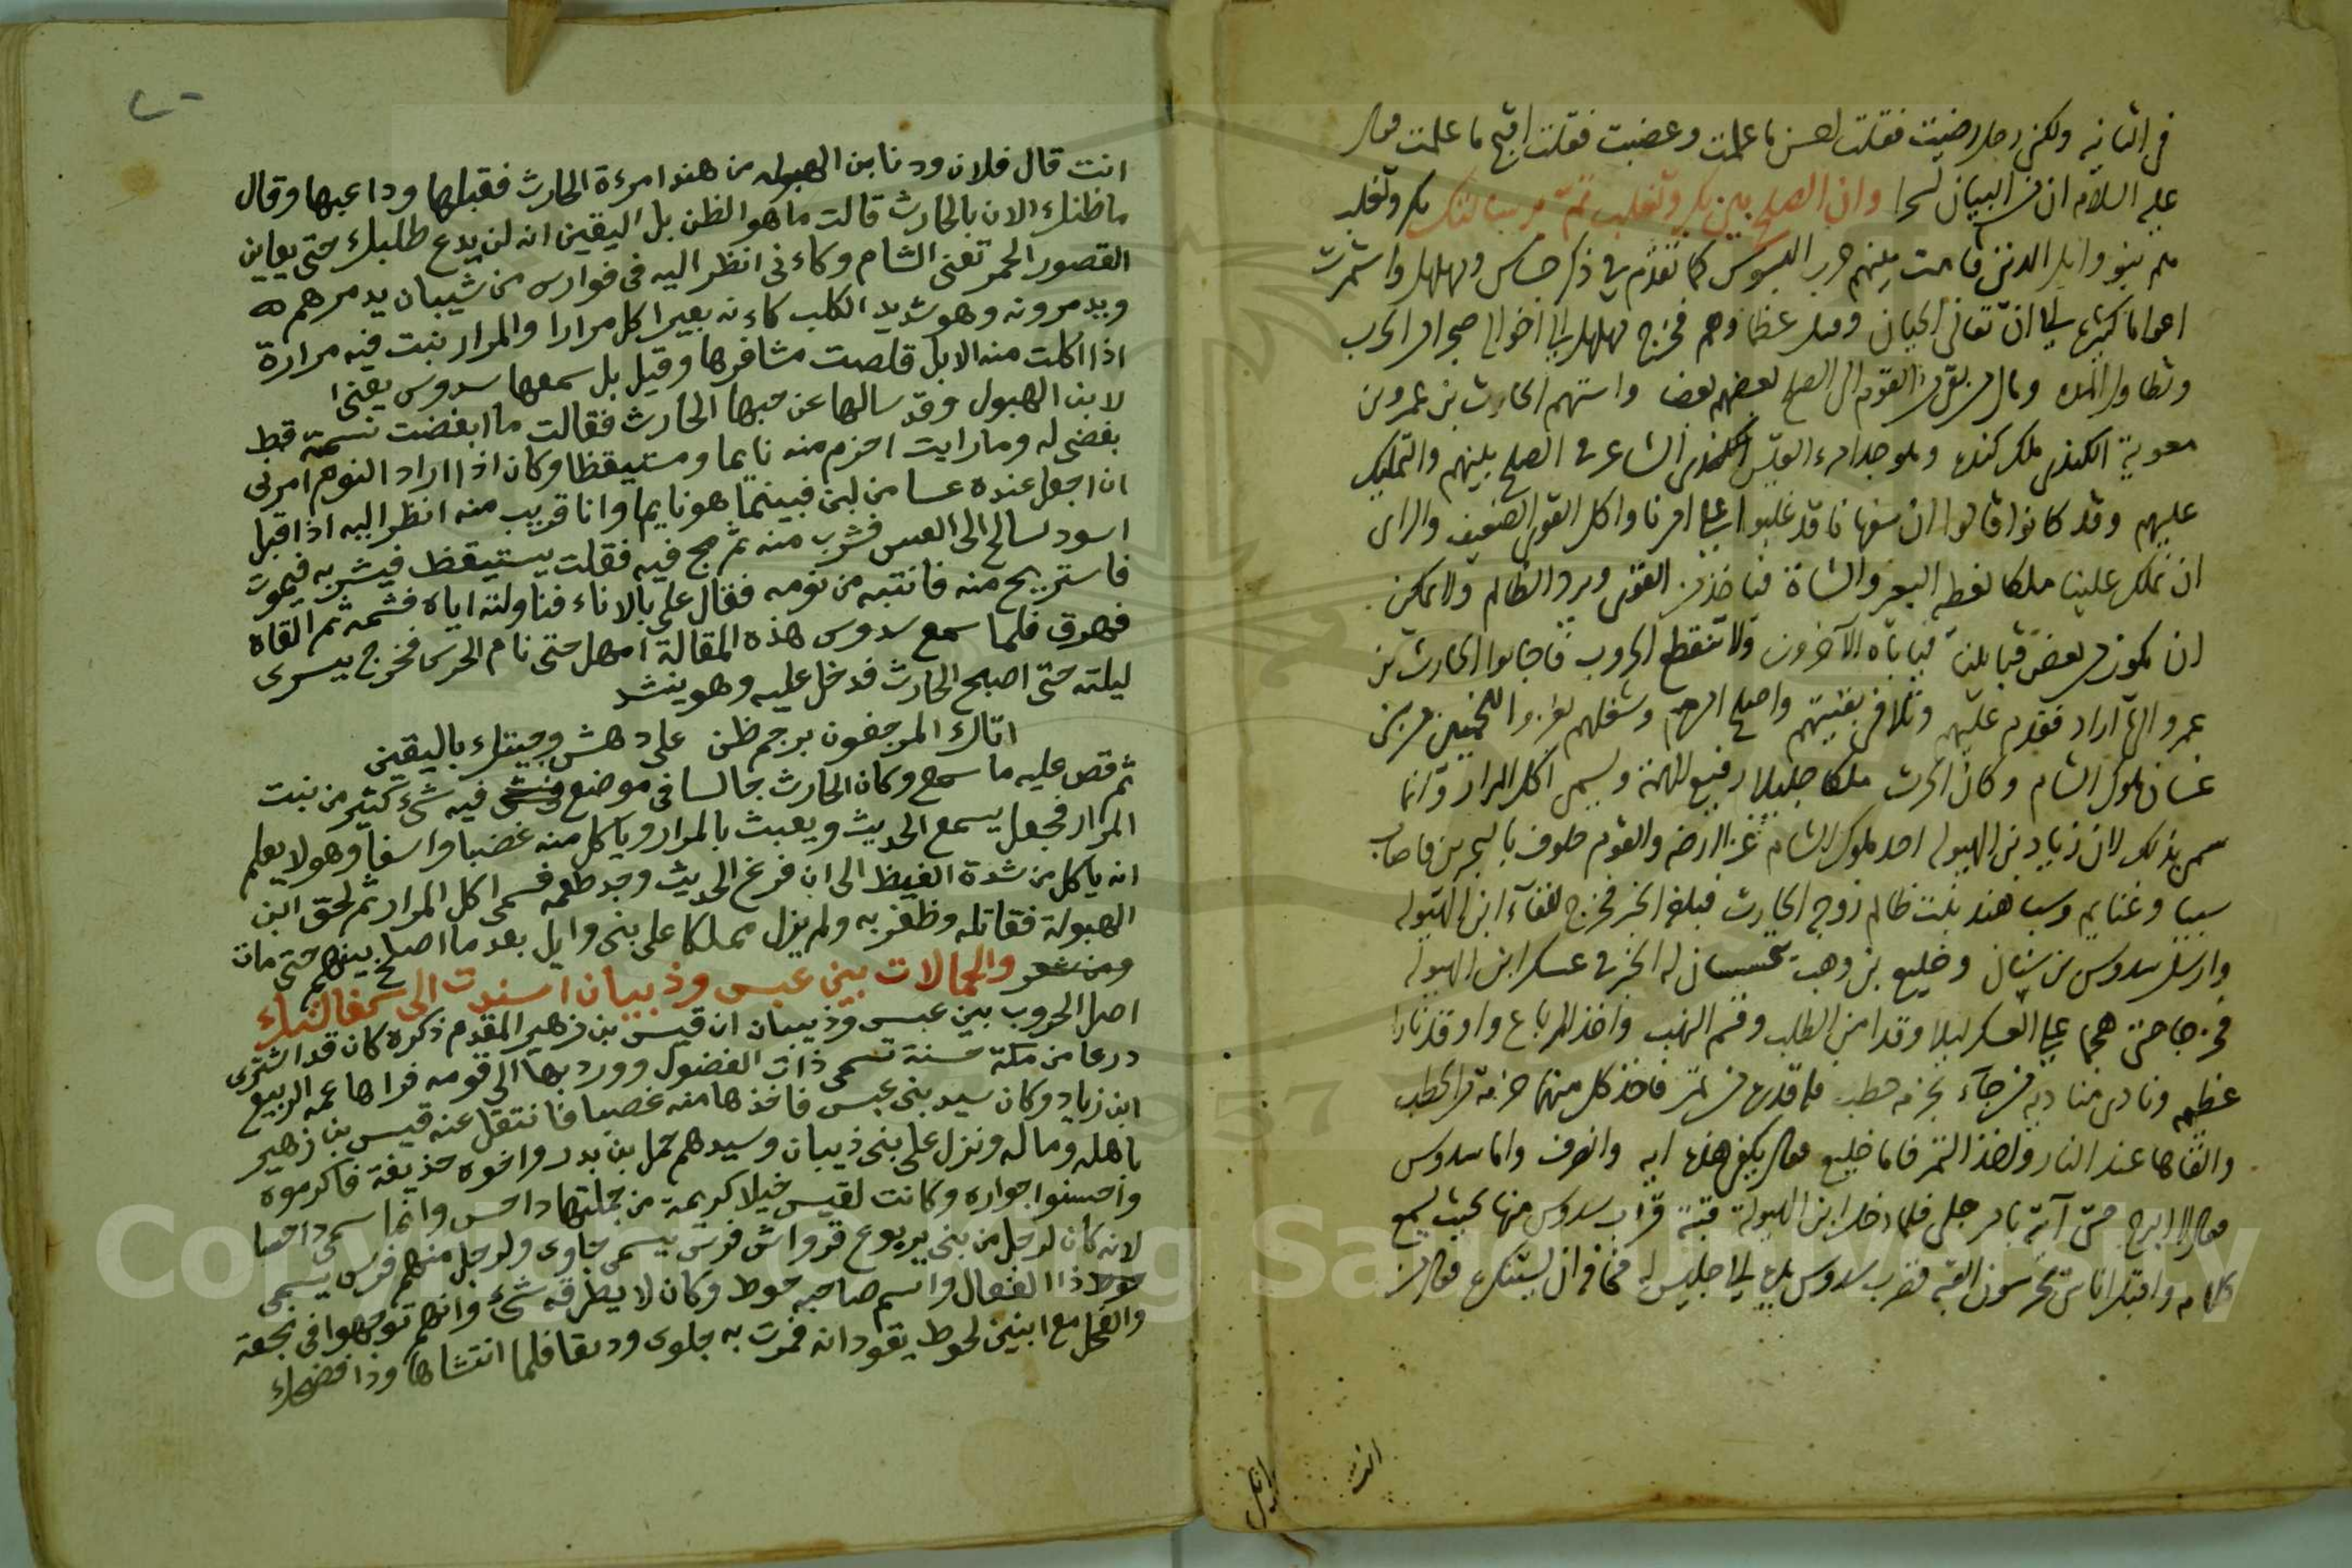 في الثانيه ولكني رجل رضيت فقلت احسن ما علمت وغضبت فقلت اقبح ما علمت فقال
عليه السلام ان من البيان لسحرا وان الصلح بين بكر وتغلب تم برسالتك بكر وتغلب
هم بنو وايل الذين قامت بينهم حرب البسوس كما تقدم في ذكر جساس ومهلهل واستمرت
اعواما كثيرة الى ان تفانى الحيان وقتل عظماوهم فخرج مهلهل الى اخواله ضجرا من الحرب
وتطاول المده ومال من بقي من القوم الى الصلح بعضهم بعضا واستهم الحارث بن عمرو بن
معوية الكندي ملك كندة وهو جد امرء القيس الكندي الشاعر في الصلح بينهم والتمليك
عليهم وقد كانوا قالوا ان سفهانا قد غلبوا على امرنا واكل القوي الضعيف والراى
ان نملك علينا ملكا نعطيه البعير والشاة فياخذ من القوي ويرد الظالم ولا يمكن
ان يكون من بعض قبايلنا فياباه الاخرون ولا تنقطع الحروب فاجابوا الحارث بن
عمرو الى ما اراد فقدم عليهم وتلافى بقيتهم واصلح امرهم وشغلهم بغزو اللخميين وبني
غسان ملوك الشام وكان الحرث ملكا جليلا رفيع الهمة ويسمى اكل المرار وانما
سمى بذلك لان زياد بن الهبوله احد ملوك الشام غزا ارضه والقوم خلوف بالبحرين فاصاب
سبيا وغنايم وسبا هند بنت ظالم زوج الحارث فبلغه الخبر فخرج للقاء ابن الهبوله
وارسل سدوس بن شيبان وخليع بن وهب يتجسسان له الخبر في عسكر ابن الهبوله
فخرجا حتى هجما على العسكر ليلا وقد امن الطلب وقسم النهب واخذ المرباع واوقد نارا
عظيمه ونادى مناديه من جاء بحزمه حطب فله قدره من تمر فاخذ كل منهما حزمة من الحطب
والقاها عند النار واخذ التمر فاما خليع فقال يكفي هذه ايه وانصرف واما سدوس
فقال لا ابرح حتى آتيه بامر جلي فلما دخل ابن الهبولة قبته قرب سدوس منها بحيث يسمع
كلامه واقبل اناس يحرسون القبه فضرب سدوس بيده الى جليس له مخافة ان يستنكره فقال من
انت
انت قال فلان ودنا بن الهبوله من هند امرءة الحارث فقبلها وداعبها وقال
ما ظنك الان بالحارث قالت ما هو الظن بل اليقين انه لن يدع طلبك حتى يعاين
القصور الحمر تعنى الشام وكاءنى انظر اليه فى فوارس من شيبان يدمرهم
ويدمرونه وهو شديد الكلب كاءنه بعير اكل مرارا والمرار نبت فيه مرارة
اذا اكلت منه الابل قلصت مشافرها وقيل بل سمعها سدوس يعنى
لابن الهبول وقد سالها عن حبها الحارث فقالت ما ابغضت نسمة قط
بغضى له وما رايت احزم منه نايما ومستيقظا وكان اذا اراد النوم امرنى
ان اجعل عنده عسا من لبن فبينما هو نايم وانا قريب منه انظر اليه اذا قبل
اسود سالخ الى العس فشرب منه ثم مج فيه فقلت يستيقظ فيشربه فيموت
فاستريح منه فانتبه من نومه فقال على بالاناء فناولته اياه فشمه ثم القاه
فهرق فلما سمع سدوس هذه المقالة امهل حتى نام الحرس فخرج يسرى
ليلته حتى اصبح الحارث فدخل عليه وهو ينشد
اتاك المرجفون برجم ظن على دهش وجيتك باليقين
ثم قص عليه ما سمع وكان الحارث جالسا فى موضع فيه شئ كثير من نبت
المرار فجعل يسمع الحديث ويعبث بالمرار وياكل منه غضبا واسفا وهو لا يعلم
انه ياكل من شدة الغيظ الى ان فرغ الحديث وجد طعمه فسمى اكل المرار ثم لحق ابن
الهبولة فقاتله وظفر به ولم يزل مملكا على بنى وايل بعد ما اصلح بينهم حتى مات
والحمالات بين عبس وذبيان اسندت الى كفالتك
اصل الحروب بين عبس وذبيان ان قيس بن زهير المقدم ذكره كان قد اشترى
درعا من مكة حسنة تسمى ذات الفضول وورد بها الى قومه فراها عمه الربيع
ابن زياد وكان سيد بنى عبس فاخذها منه غصبا فانتقل عنه قيس بن زهير
باهله وماله ونزل على بنى ذبيان وسيدهم حمل بن بدر واخوه حذيفة فاكرموه
واحسنوا جواره وكانت لقيس خيلا كريمة من جملتها داحس وانما سمى داحسا
لانه كان لرجل من بنى يربوع قرواش فرس يسمى جلوى ولرجل منهم فرس يسمى
ذا العقال واسم صاحبه حوط وكان لا يطرقه شئ وانهم توجهوا فى نجعة
والفحل مع ابنين لحوط يقودانه فمرت به جلوى ودقا فلما انتشاها وذا فضحك
Copyright © King Saud University
1957